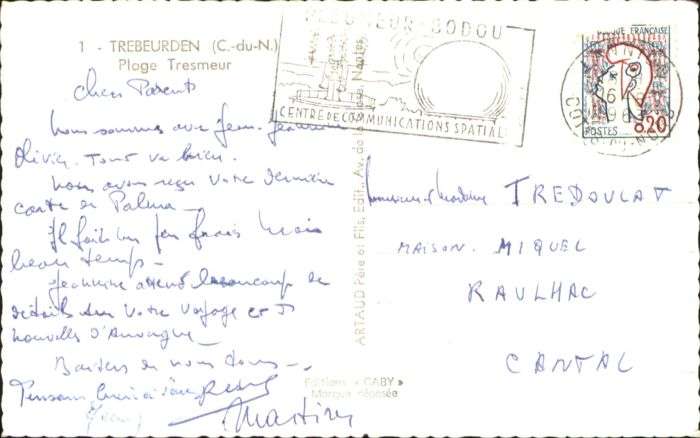 1 - TREBEURDEN (C.-du-N.)
Plage Tresmeur
Chers Parents
Nous sommes avec Jean. Jeannine
Olivier. Tout va bien.
Nous avons reçu votre dernière
carte de Palma -
Il fait un peu frais mais
beau temps -
Jeannine attend beaucoup de
détails sur votre voyage et
nouvelles d'Auvergne -
Baisers de nous tous -
Martine
PLEUMEUR-BODOU
CENTRE DE COMMUNICATIONS SPATIALES
ARTAUD Père et Fils, Edit., Av. de la Nantes
Editions « GABY »
Marque déposée
FRANÇAISE
POSTES 0.20
Monsieur et Madame TREDOULAT
MAISON. MIQUEL
RAULHAC
CANTAL